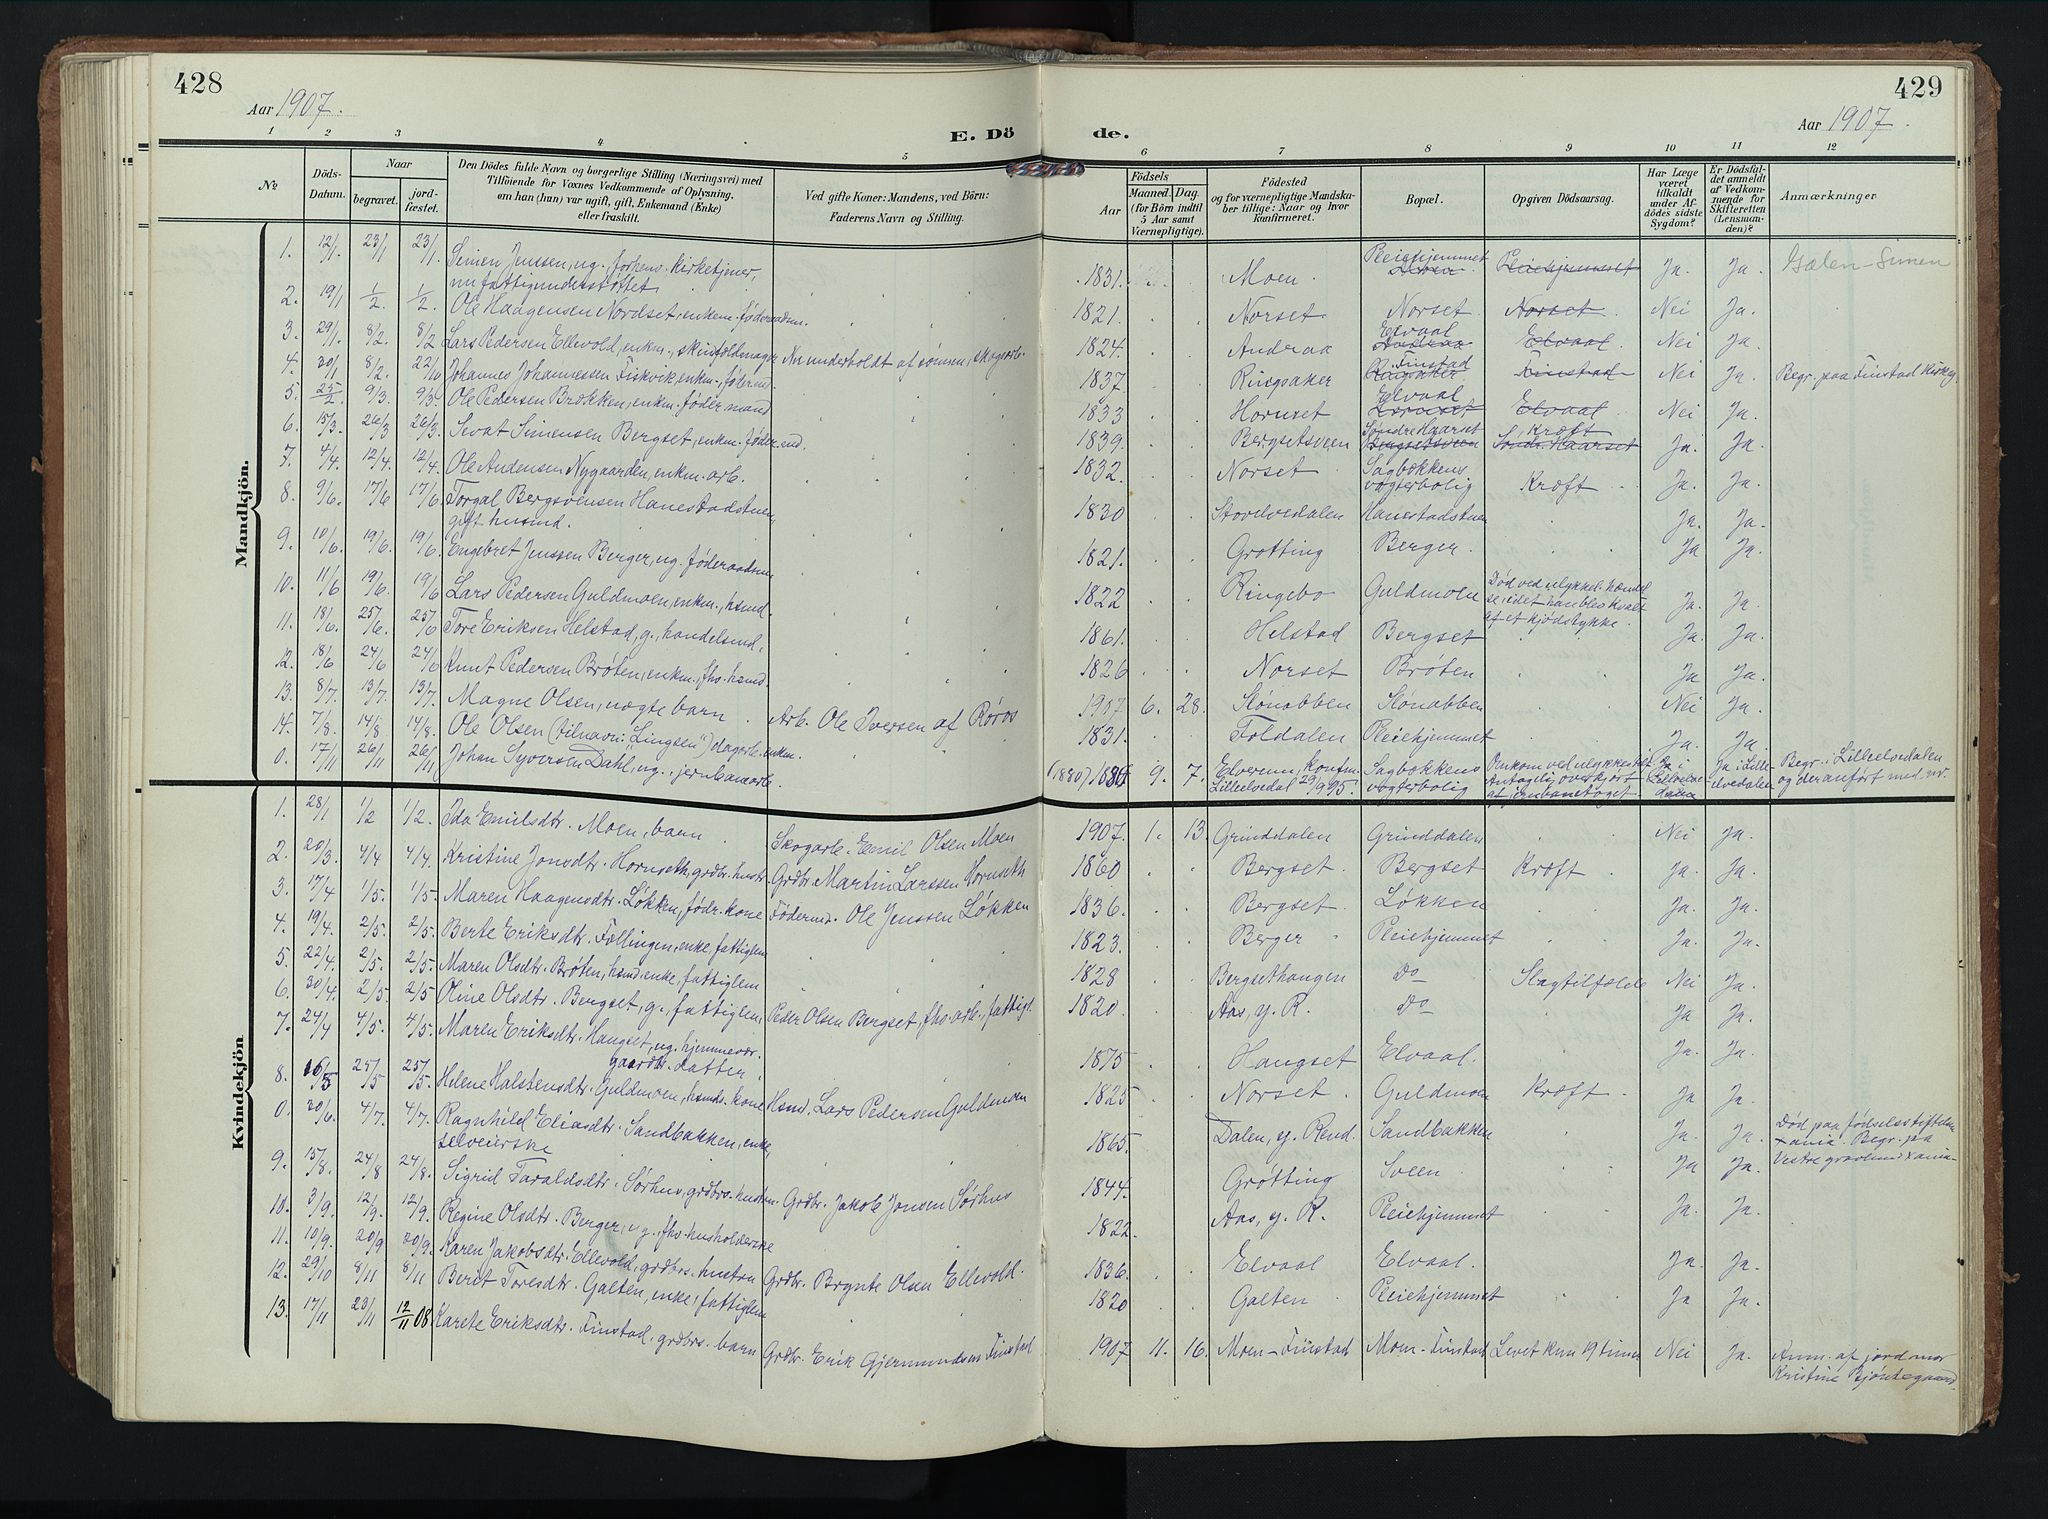 428
Aar 1907.
E. Dö
1 2 3 4 5
No.
Döds-Datum.
Naar
begravet.
jordfæstet.
Den Dödes fulde Navn og borgerlige Stilling (Næringsvei) med
Tilföiende for Voxnes Vedkommende af Oplysning,
om han (hun) var ugift, gift, Enkemand (Enke)
eller fraskilt.
Ved gifte Koner: Mandens, ved Börn:
Faderens Navn og Stilling.
Mandkjön.
1. 12/1 23/1 23/1 Simen Jenssen, ug. forhenv. kirketjener,
nu fattigunderstøttet
2. 19/1 1/2 1/2 Ole Haagensen Nordset, enkem. føderaadm.
3. 29/1 8/2 8/2 Lars Pedersen Ellevold, enkm., skindfeldmager Nu underholdt af sønnen, skogsarb.
4. 30/1 8/2 22/6 Johannes Johannessen Fiskvik, enkm., fødermd.
5. 25/2 9/3 9/3 Ole Pedersen Brækken, enkm. føder mand
6. 15/3 26/3 26/3 Sevat Simensen Bergset, enkm. føder md.
7. 4/4 12/4 12/4 Ole Andensen Nygaarden, enkm. arb.
8. 9/6 17/6 17/6 Torgal Bergsvensen Hanestadstuen,
gift husmd.
9. 10/6. 19/6. 19/6. Engebret Jenssen Berger, ug. føderaadsm
10. 11/6 19/6. 19/6 Lars Pedersen Guldmoen, enkm., hsmd.
11. 18/6. 25/6. 25/6 Tore Eriksen Helstad, g., handelsmd.
12. 18/6 24/6 24/6 Knut Pedersen Brøten, enkm., fhv. hsmd.
13. 8/7 13/7 13/7 Magne Olsen, uægte barn Arb. Ole Iversen af Røros
14. 7/8. 14/8 14/8. Ole Olsen (tilnavn: "Lingsen") dagarb. enkm.
0. 17/11 26/11 26/11 Johan Syversen Dahl, ug., jernbanearb.
Kvindekjön
1. 28/1 1/2 1/2 Ida Emilsdtr. Moen, barn Skogarb. Emil Olsen Moen
2. 20/3 4/4 4/4. Kristine Jonsdtr. Hornseth, grdbr. hustr. Grdbr. Martin Larssen Hornseth
3. 17/4 1/5. 1/5 Maren Haagensdtr. Løkken, fødr. kone Födermd. Ole Jenssen Løkken
4. 19/4. 2/5. 2/5. Berte Eriksdtr. Fællingen, enke, fattiglem
5. 22/4. 2/5. 2/5. Maren Olsdtr. Brøten, hsmd. enke, fattiglem
6. 30/4. 2/5. 2/5 Oline Olsdtr. Bergset, g., fattiglem, Peder Olsen Bergset, fhv. arb., fattigl.
7. 24/4 4/5. 4/5. Maren Eriksdtr. Haugset, ug. hjemmevær.
gaardbr. datter.
8. 16/5 25/5 25/5. Helene Halstensdtr. Guldmoen, hsmds. kone Hsmd. Lars Pedersen Guldmoen
0. 30/6. 4/7. 4/7. Ragnhild Eliasdtr. Sandbakken, enke,
selveierske
9. 15/8. 24/8 24/8. Sigrid Taraldsdtr. Sørhus, grdbrs. hustru. Grdbr. Jakob Jonsen Sørhus
10. 3/9. 12/9. 12/9. Regine Olsdtr. Berger, ug., fhv. husholderske
11. 10/9. 20/9 20/9. Karen Jakobsdtr. Ellevold, grdbrs. hustru Grdbr. Brynte Olsen Ellevold.
12. 29/10 8/11 8/11 Berit Toresdtr. Galten, enke, fattiglem
13. 17/11 23/11 12/11 08. Karete Eriksdtr. Finstad, grdbrs. barn Grdbr. Erik Gjermundsen Finstad
429
Aar 1907.
de.
6 7 8 9 10 11 12
Födsels
Aar
Maaned. Dag.
(for Börn indtil
5 Aar samt
Værnepligtige).
Födested
og for værnepligtige Mandskaber tillige: Naar og hvor
konfirmeret.
Bopæl.
Opgiven Dödsaarsag.
Har Læge
været
tilkaldt
under Afdödes sidste
Sygdom?
Er Dödsfaldet anmeldt
af Vedkommende for
Skifteretten
(Lensmanden)?
Anmærkninger
1831. Moen Pleiehjemmet Pleiehjemmet Ja. Ja. Galen-Simen
1821. Norset. Norset Norset Nei Ja.
1824. Andraa Elvaal Andraa Elvaal Nei Ja.
1837. Ringsaker Finstad Ringsaker Finstad Nei Ja. Begr. paa Finstad kirkeg.
1833 Hornset Elvaal Hornset Elvaal Nei Ja.
1839. Bergsetsveen Søndre Haarset Bergsetsveen Kræft Søndr. Haarset Ja. Ja.
1832. Norset Sagbakkens
vogterbolig Kræft Ja. Ja.
1830 Storelvedalen Hanestadstuen Ja. Ja.
1821. Grotting Berger. Ja Ja.
1822 Ringebo Guldmoen Død ved ulykkel. hændel
se, idet han blev kvalt
af et kjødstykke. Ja. Ja.
1861. Helstad Bergset Ja. Ja.
1826 Norset Brøten Ja Ja.
1907 6. 28. Stønabben Stønabben Nei Ja.
1831. Foldalen Pleiehjemmet Ja. Ja.
(1880). 1880 9. 7. Elverum, konfm.
Lilleelvedal 29/9 95. Sagbakkens
vogterbolig Omkom ved ulykkestilf.
Antagelig overkjørt
af jernbanetoget Ja i Lilleelvedalen Ja i Lilleelvedalen Begr. i Lilleelvedalen
og der anført med nr.
1907. 1. 13. Grinddalen Grinddalen Nei Ja.
1860 Bergset Bergset Kræft Ja. Ja.
1836. Bergset. Løkken Ja. Ja.
1823. Berger Pleiehjemmet Ja. Ja.
1828 Bergsethaugen Do Slagtilfælde Nei Ja.
1820. Aas, y. R. Do Ja Ja.
1875 Haugset Elvaal. Ja. Ja.
1825 Norset. Guldmoen Kræft Ja Ja.
1865. Dalen, y. Rend. Sandbakken Ja. Ja. Død paa fødselsstiftelsen
Xania. Begr. paa
Vestre gravlund Xania
1844. Grotting Sveen. Ja Ja.
1822 Aas, y. R. Pleiehjemmet Ja. Ja.
1836. Elvaal Elvaal. Ja. Ja.
1820 Galten Pleiehjemmet Ja Ja.
1907 11. 16. Moen-Finstad Moen-Finstad Levet kun 19 timer Nei Ja. Anm. af jordmor
Kristine Bjøntegaard.